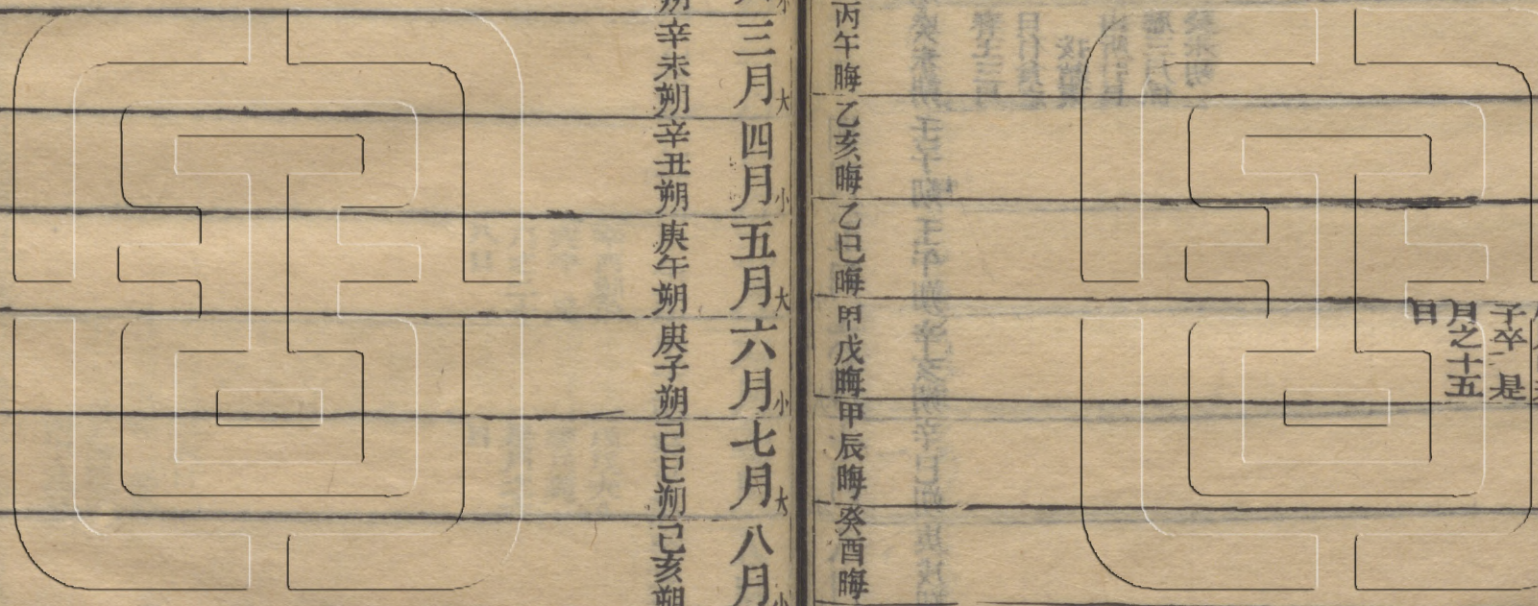 子卒 是
月之十五
日
丙午晦 乙亥晦 乙巳晦 甲戌晦 甲辰晦 癸酉晦
三月大 四月小 五月大 六月小 七月大 八月小
辛未朔 辛丑朔 庚午朔 庚子朔 己巳朔 己亥朔